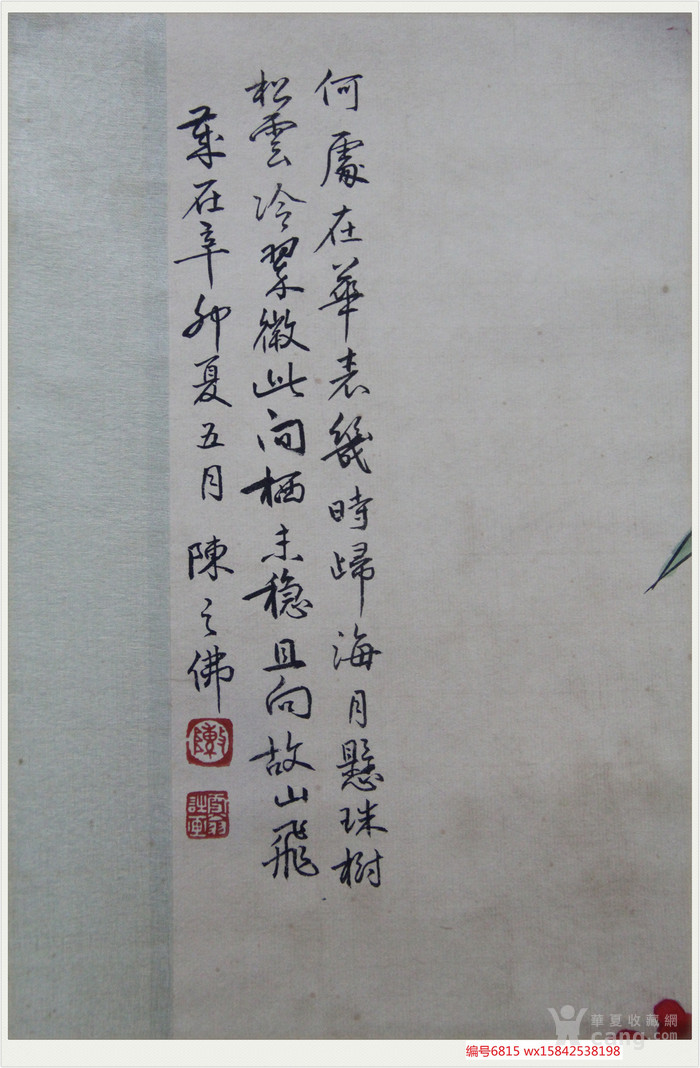 何處在華表幾時歸海月懸珠樹
松雲冷翠微此間栖未穩且向故山飛
歲在辛卯夏五月 陳之佛
陳
華夏收藏網
cang.com
编号6815 wx15842538198